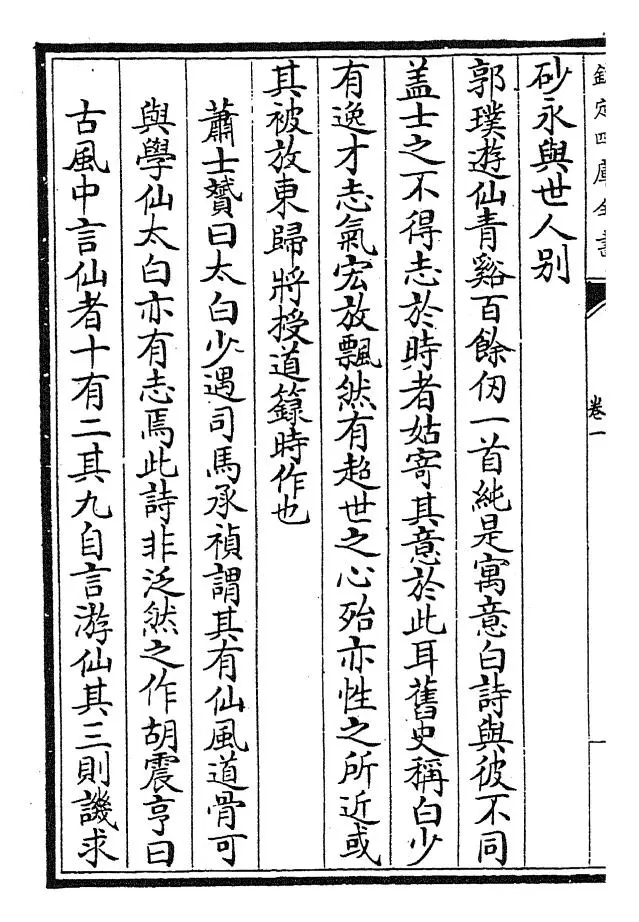 欽定四庫全書
卷一
砂永與世人别
郭璞遊仙青谿百餘仞一首純是寓意白詩與彼不同
盖士之不得志於時者姑寄其意於此耳舊史稱白少
有逸才志氣宏放飄然有超世之心殆亦性之所近或
其被放東歸將授道籙時作也
蕭士贇曰太白少遇司馬承禎謂其有仙風道骨可
與學仙太白亦有志焉此詩非泛然之作胡震亨曰
古風中言仙者十有二其九自言游仙其三則譏求